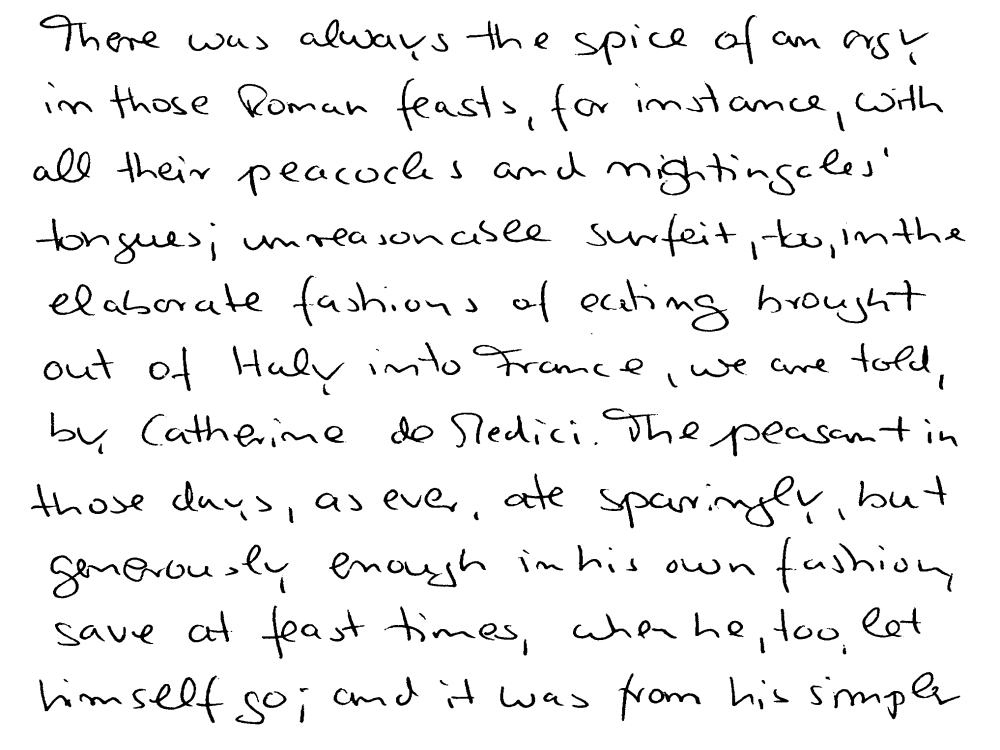 There was always the spice of an orgy
in those Roman feasts, for instance, with
all their peacocks and nightingales'
tongues; unreasonable surfeit, too, in the
elaborate fashions of eating brought
out of Italy into France, we are told,
by Catherine de Medici. The peasant in
those days, as ever, ate sparingly, but
generously enough in his own fashion,
save at feast times, when he, too, let
himself go; and it was from his simple